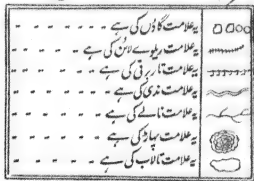 یہ علامت گاؤں کی ہے - - - - - -
یہ علامت ریلوے لائن کی ہے - - - - -
یہ علامت تار برقی کی ہے - - - - - -
یہ علامت ندی کی ہے - - - - - -
یہ علامت نالے کی ہے - - - - - -
یہ علامت پہاڑ کی ہے - - - - - -
یہ علامت تالاب کی ہے - - - - -